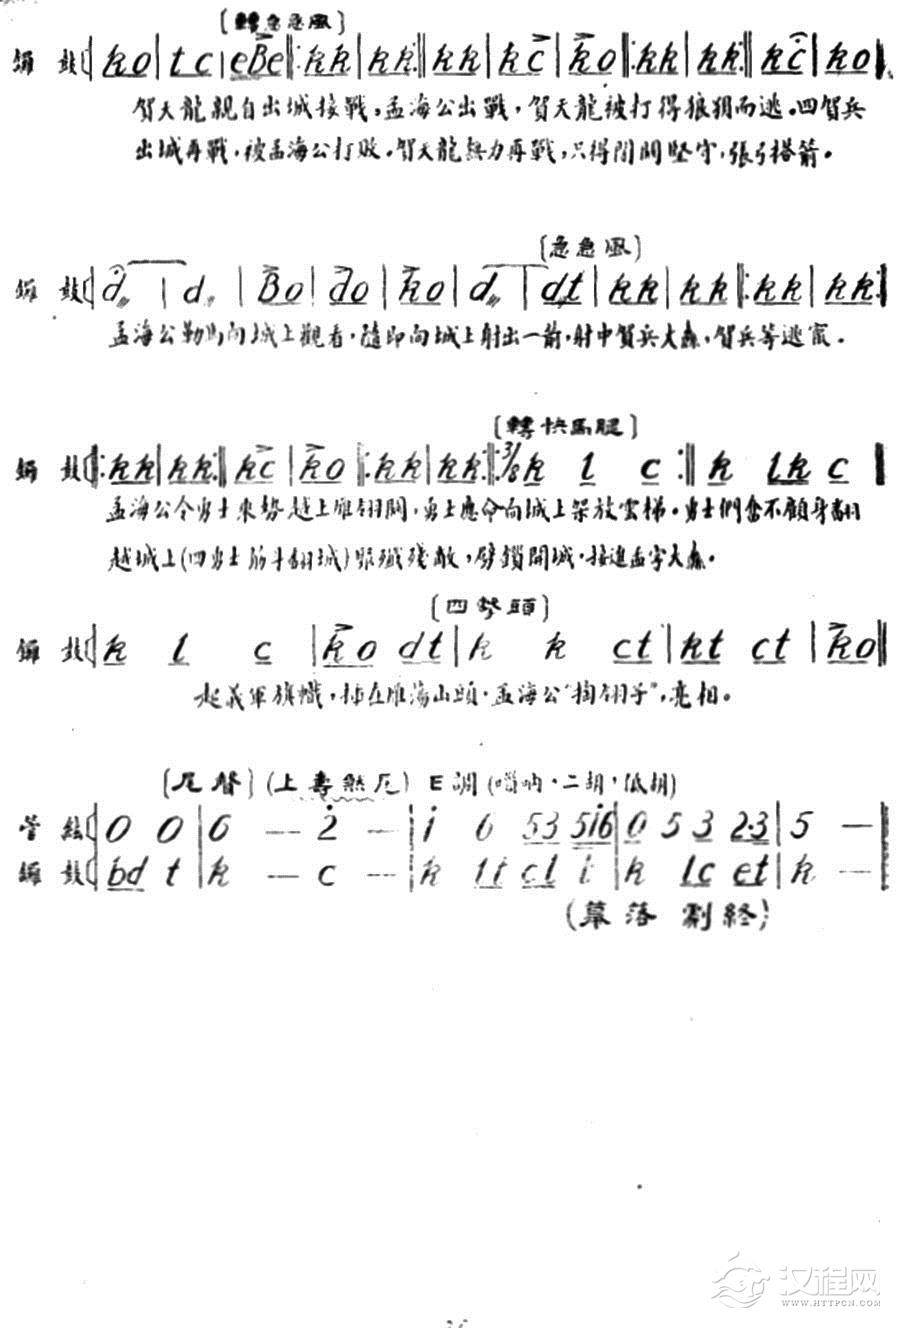 〔轉急急風〕
鑼 鼓 | ko | t c | eBe ‖: kk | kk :‖ kk | kc | ko ‖: kk | kk :‖ kc | ko |
賀天龍親自出城接戰,孟海公出戰,賀天龍被打得狼狽而逃。四賀兵
出城再戰,被孟海公打敗。賀天龍無力再戰,只得閉關堅守,張弓搭箭。
〔急急風〕
鑼 鼓 | d | d | Bo | do | ko | d | dt | kk | kk ‖: kk | kk :‖
孟海公勒馬向城上觀看,隨即向城上射出一箭,射中賀兵大纛,賀兵等逃竄。
〔轉快馬腿〕
鑼 鼓 ‖: kk | kk :‖ kc | ko ‖: kk | kk :‖: 3/8 k l c :‖ k lk c ‖
孟海公令勇士乘勢越上雁翎關,勇士應命向城上架放雲梯。勇士們奮不顧身翻
越城上(四勇士筋斗翻城)殲殘敵,劈鎖開城,接進孟字大纛。
〔四擊頭〕
鑼 鼓 | k l c | ko dt | k k ct | kt ct | ko ‖
起義軍旗幟,插在雁蕩山頭。孟海公“掏翎子”,亮相。
〔尾聲〕(上壽煞尾) E調(嗩吶、二胡,低胡)
管 絃 | 0 0 | 6 — 2̇ — | i̇ 6 53 5i̇6 | 0 5 3 2·3 | 5 — ‖
鑼 鼓 | bd t | k — c — | k lt cl t | k lc et | k — ‖
(幕落 劇終)
汉程网
WWW.HTTPCN.COM